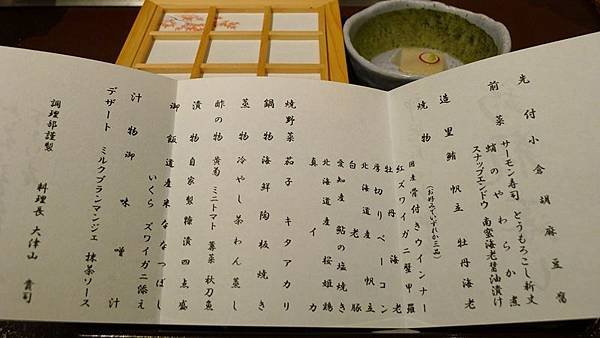 先付 小倉胡麻豆腐
前菜 サーモン寿司 とうもろこし新丈
蛸のやわらか煮 南蛮海老醤油漬け
スナップエンドウ
造里 鮪 帆立 牡丹海老
焼物 国産骨付きウインナー
(お好みでいずれか三品)
紅ズワイガニ蟹甲羅
牡丹海老
厚切りベーコン
北海道産 帆立
白老豚
愛知産 鮎の塩焼き
北海道産 桜姫鶏
真イカ
焼野菜 茄子 キタアカリ
鍋物 海鮮陶板焼き
蒸物 冷やし茶わん蒸し
酢の物 黄菊 ミニトマト 蓴菜 秋刀魚
漬物 自家製糠漬四点盛
御飯 道産米ななつぼし
いくら ズワイガニ添え
汁物 御味噌汁
デザート ミルクブランマンジェ 抹茶ソース
調理部謹製 料理長 大津山 貴司